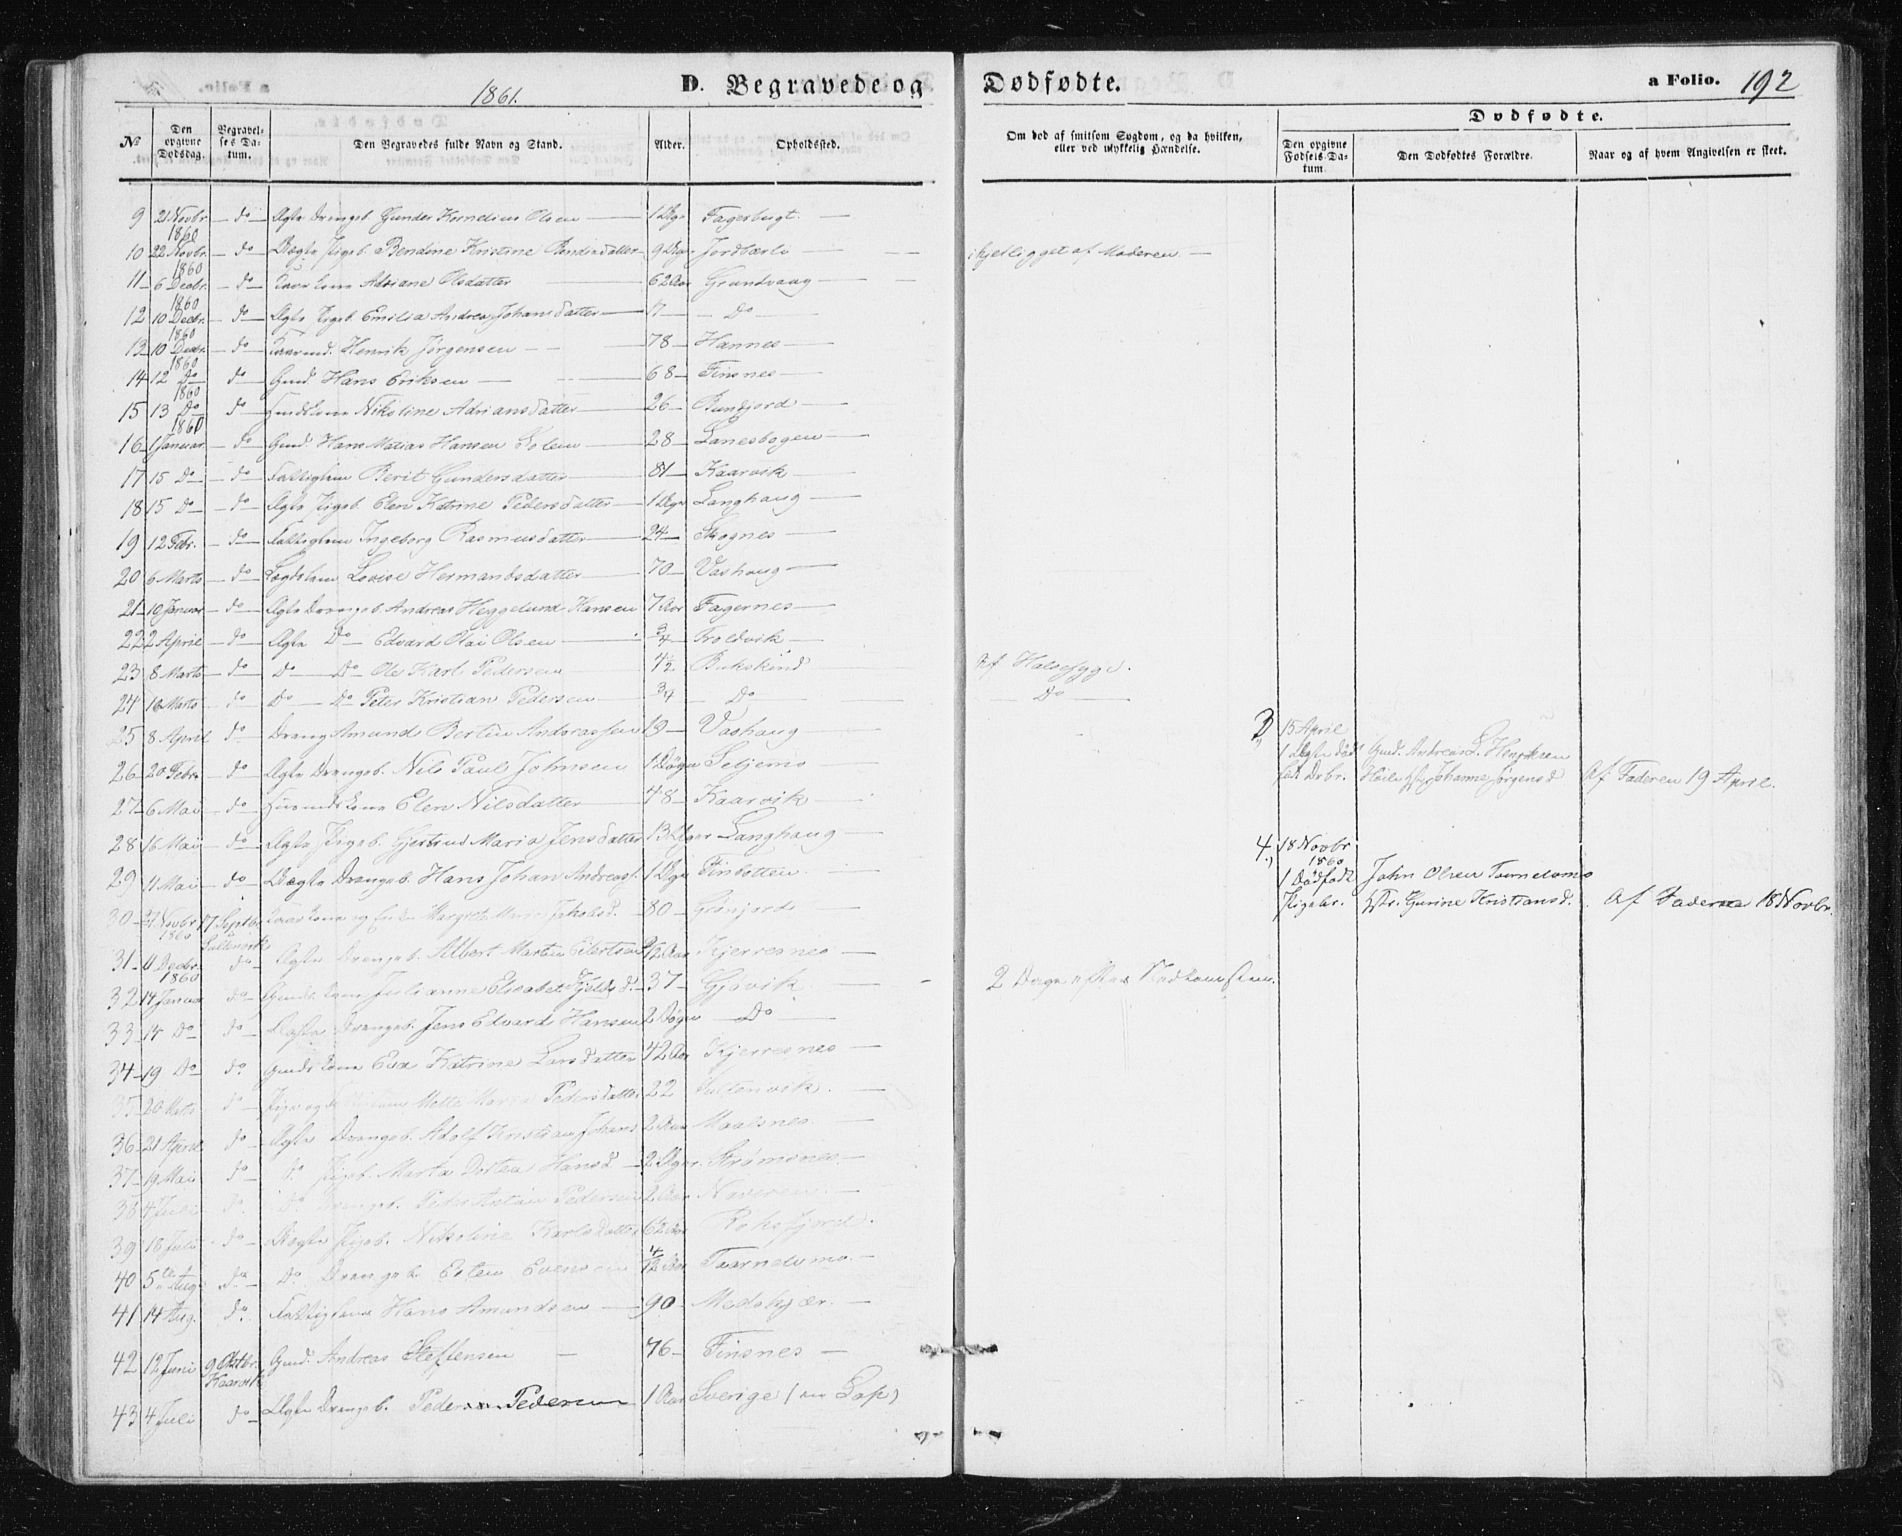 1861.
D. Begravede og Dødfødte.
a Folio. 192
No
Den opgivne Dødsdag.
Begravelses Datum.
Den Begravedes fulde Navn og Stand.
Alder.
Opholdssted.
Om død af smitsom Sygdom, og da hvilken, eller ved ulykkelig Hændelse.
Dødfødte.
Den opgivne Fødsels-Datum
Den Dødfødtes Forældre.
Naar og af hvem Angivelsen er skeet.
9 21 Novbr. 1860 do Ægte Drengeb. Gunder Kornelius Olsen 1 Dgn Fagerbugt.
10 22 Novbr. 1860 do Uægte Pigeb. Bendine Kristine Bendiksdatter 9 Dage Jordbærli ihjelligget af Moderen
11 6 Decbr. 1860 do Adriane Olsdatter 62 Aar Grundvaag
12 10 Decbr. 1860 do Ægte Pigeb. Emilia Andrea Johansdatter 7 Do
13 10 Decbr. 1860 do Henrik Jørgensen 78 Hannes
14 12 Do 1860 do Gmd. Hans Eriksen 68 Finsnes
15 13 Do 1860 do Nikoline Adriansdatter 26
16 1 Januar do Gmd. Hans Matias Hansen 28 Lanesbogen
17 15 Do do Fattiglem Berit Gundersdatter 81 Kaarvik
18 15 Do do Ægte Pigeb. Elen Katrine Pedersdatter 1 Dgn Langhaug
19 12 Febr. do Fattiglem Ingeborg Rasmusdatter 24 Skognes
20 6 Marts do Lægdslem Lovise Hermansdatter 70 Vashaug
21 10 Januar do Ægte Drengeb. Andreas Heggelund Hansen 7 Aar Fagernes
22 2 April do Ægte Do Edvard Olai Olsen 3/4 Troldvik
23 8 Marts do Do Do Ole Karl Pedersen 4 1/2 Bukskind Af Halssyge.
24 16 Marts do Do Do Peter Kristian Pedersen 3/4 Do Do
25 8 April do Dreng Amund Bertin Andreassen 18 Vashaug
26 20 Febr. do Ægte Drengeb. Nils Paul Johnsen 1 Døgn Seljemo
27 6 Mai do Elen Nilsdatter 48 Kaarvik
28 16 Mai do Ægte Pigeb. Gjertrud Maria Jensdatter 13 Dger Langhaug
29 11 Mai do Uægte Drengeb. Hans Johan Andreass. 1 Dgn Finbotten
30 21 Novbr 1860 17 Septbr 80 Grønjord
31 11 Decbr. 1860 do Ægte Drengeb. Albert Martin Eilertsen Kjerresnes
32 14 Januar do Julianne Elisabet 37 Gjøvik 2 Dage efter Nedkomsten.
33 15 Do do Ægte Drengeb. Jens Edvard Hansen 2 Døgn Do
34 19 Do do Eva Katrine Larsdatter 42 Aar Kjerresnes
35 20 Marts do Mette Maria Pedersdatter 22
36 21 April do Ægte Drengeb. Adolf Kristian Johans 2 Aar Maalsnes
37 19 Mai do Do Pigeb. Marta Dortea Hansd 2 Dger. Strømsnes
38 4 Juli Do Do Drengeb. Peder Antoni Pedersen 2 Aar Naveren
39 18 Juli do Uægte Pigeb. Nikoline Karlsdatter 6/12 Aar Roksfjord.
40 5te Aug. do Do Drengeb. Esten Evensen 4/12 Aar Taarnelvmo
41 14 Aug. do Fattiglem Hans Amundsen 90 Medskjær.
42 12 Juni 9 Oktbr. Kaarvik Gmd. Andreas Steffensen 76 Finsnes
43 4 Juli do Ægte Drengeb. Peder Pedersen 1 Aar Sverige (en Lap)
3, 15 April 1 Ægte dødfødt Drbr. Gmd. Andreas L. Henriksen Høilu Hstr. Johanne Jørgensd Af Faderen 19 April.
4.) 18 Novbr 1860 1 Dødfødt Pigebr. John Olsen Taarnelvmo Hstr. Gurine Kristiansd. Af Faderne 18 Novbr.